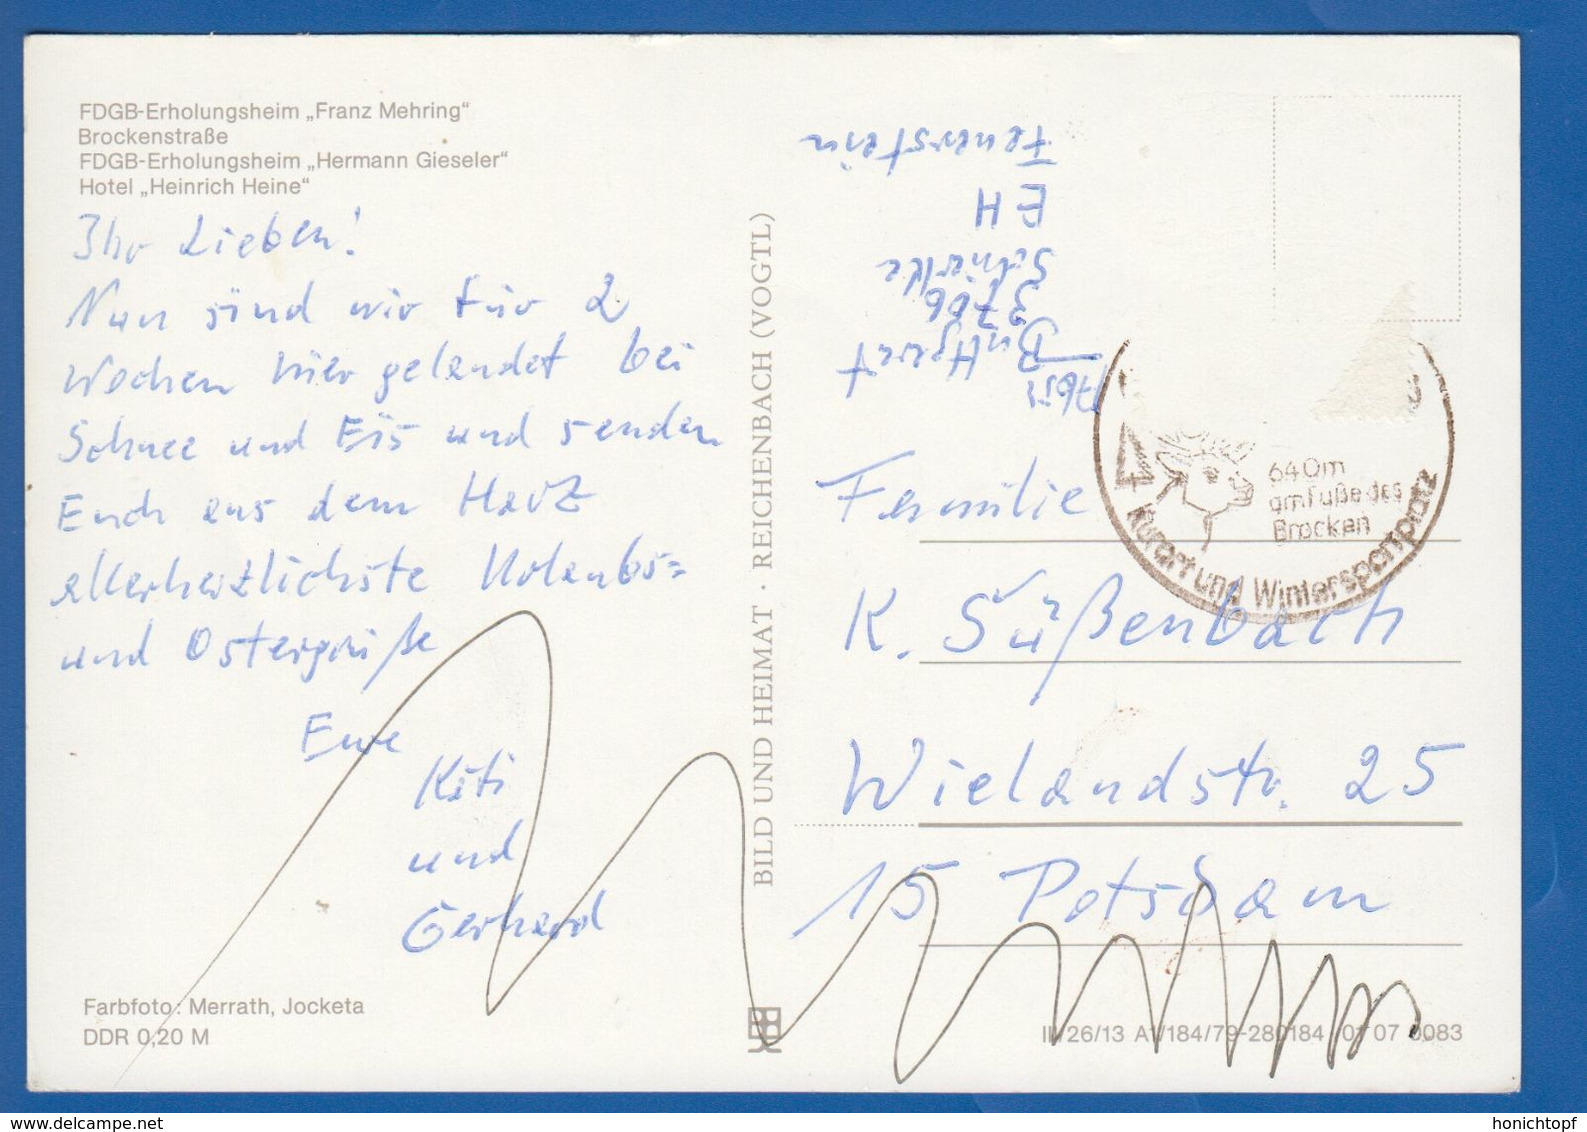 FDGB-Erholungsheim „Franz Mehring“
Brockenstraße
FDGB-Erholungsheim „Hermann Gieseler“
Hotel „Heinrich Heine“
Ihr Lieben!
Nun sind wir für 2
Wochen hier gelandet bei
Schnee und Eis und senden
Euch aus dem Harz
allerherzlichste Urlaubs=
und Ostergrüße
Eure
Käti
und
Gerhard
Farbfoto: Merrath, Jocketa
DDR 0,20 M
BILD UND HEIMAT · REICHENBACH (VOGTL)
Abs.
3706
Schierke
EH
Feuerstein
640m
am Fuße des
Brocken
Kurort und Wintersportplatz
Familie
K. Süßenbach
Wielandstr. 25
15 Potsdam
III/26/13 A1/184/79-280184 01 07 0083
www.delcampe.net
honichtopf